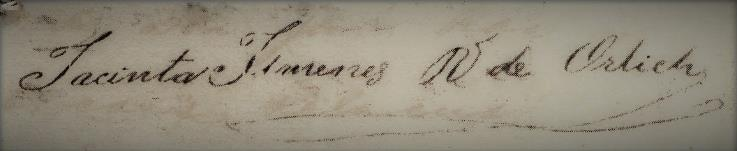 Jacinta Jimenez R de Orlich